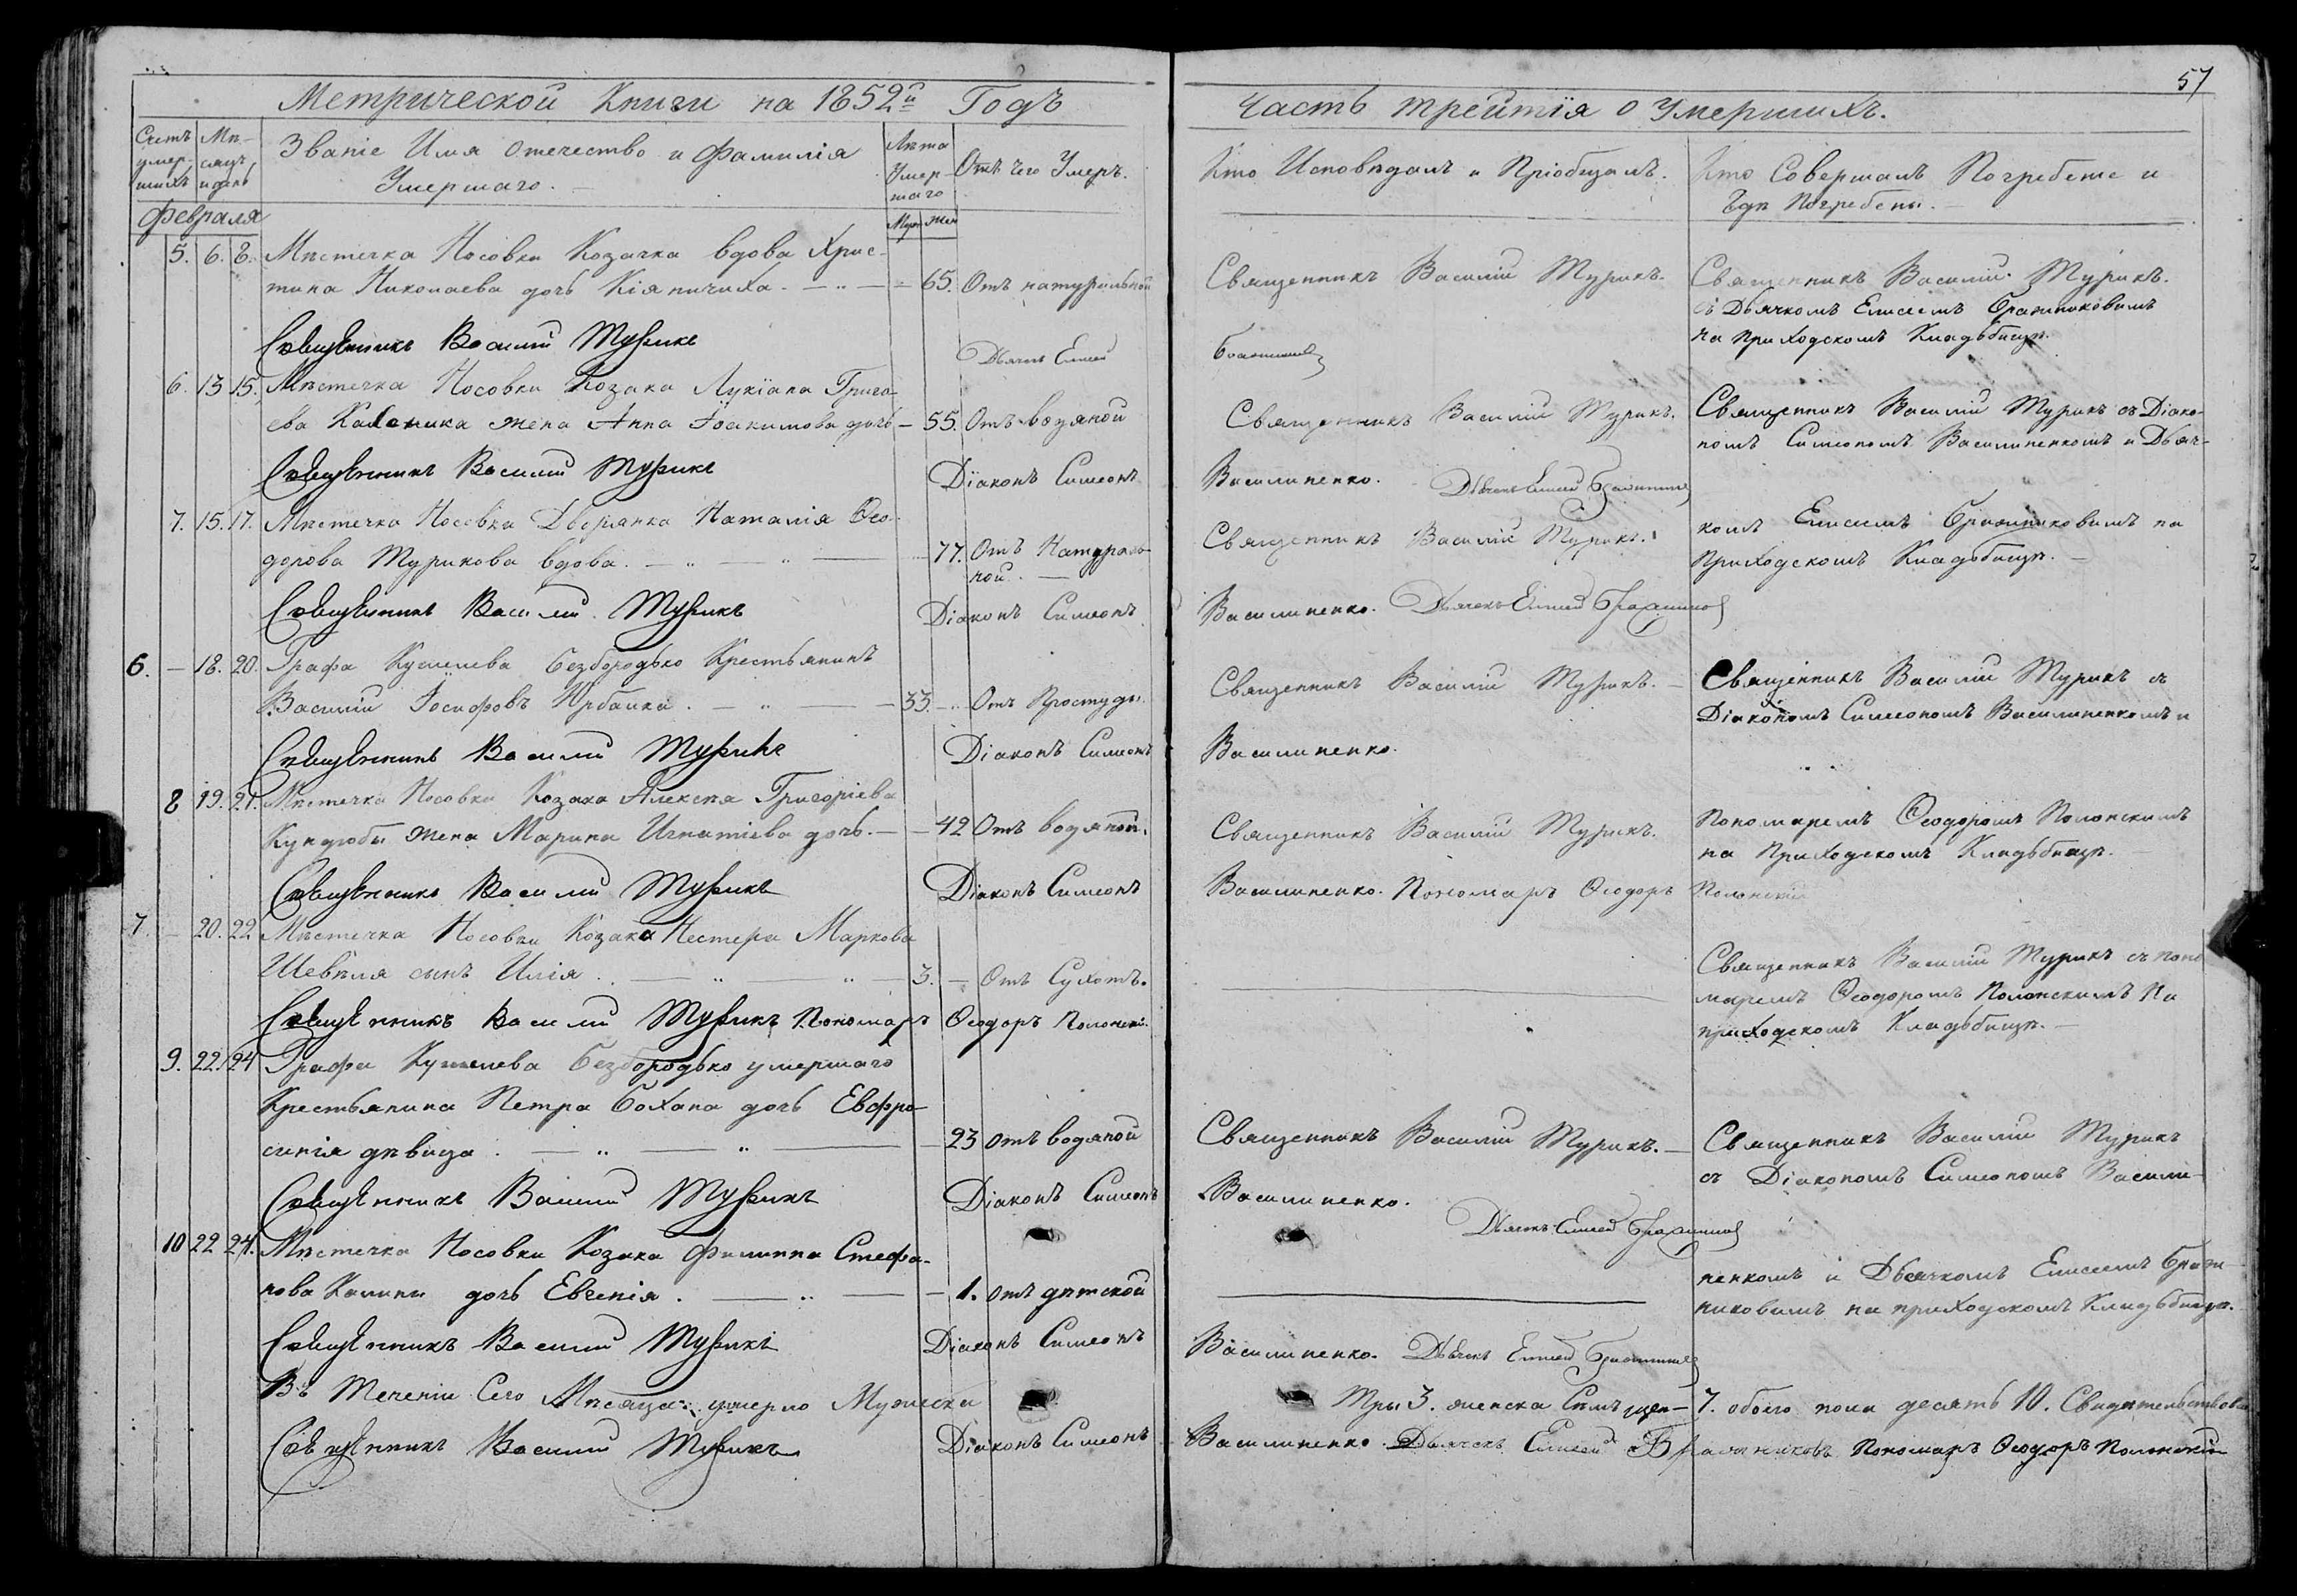 57
Метрической Книги на 1852й Годъ
Часть третїя о Умершихъ.
Счетъ умер-шихъ
Мѣ-сяцъ и день
Званіе Имя Отечество и Фамилія
Умершаго.
Лѣта Умер-шаго
Муж Жен
Отъ чего Умеръ.
Кто Исповѣдалъ и Пріобщалъ.
Кто Совершалъ Погребеніе и
Гдѣ Погребены.
Февраля
5. 6. 8. Мѣстечка Носовки Козачка вдова Хрис-
тина Николаева дочь Кіяничиха. 65. Отъ натуральной
Священникъ Василій Турикъ.
Священникъ Василій Турикъ.
съ Дьячкомъ Елисеемъ Бражниковымъ
на приходскомъ Кладьбищѣ.
Священникъ Василий Турикъ
Дьячекъ Елисей
6. 13 15. Мѣстечка Носовки Козака Лукіана Григо-
ева жена Анна Іоакимова дочь 55. Отъ водяной
Священникъ Василій Турикъ.
Священникъ Василій Турикъ съ Діако-
номъ Симеономъ Василиненкомъ и Дьяч-
Священникъ Василий Турикъ Діаконъ Симеонъ Василиненко. Дьячекъ Елисей Бражников
7. 15. 17. Мѣстечка Носовки Дворянка Наталія Ѳео-
дорова Турикова вдова. 77. Отъ Натураль-
ной.
Священникъ Василій Турикъ.
комъ Елисеемъ Бражниковымъ на
Приходскомъ Кладьбищѣ.
Священникъ Василий Турикъ Діаконъ Симеонъ Василиненко. Дьячекъ Елисей Бражников
6. — 18. 20. Графа Кушелева Безбородько Крестьянинъ
Василій Іосифовъ 33. Отъ Простуды.
Священникъ Василій Турикъ.
Священникъ Василій Турикъ съ
Діакономъ Симеономъ Василиненкомъ и
Священникъ Василий Турикъ Діаконъ Симеонъ Василиненко.
8 19. 21. Мѣстечка Носовки Козака Алексѣя Григоріева
Кундюбы жена Марина Игнатіева дочь. 42 Отъ водяной.
Священникъ Василій Турикъ.
Пономаремъ Ѳеодоромъ Полонскимъ
на Приходскомъ Кладьбищѣ.
Священникъ Василий Турикъ Діаконъ Симеонъ Василиненко. Пономарь Ѳеодоръ Полонскій
7. — 20. 22 Мѣстечка Носовки Козака Нестера Маркова
Шевѣля сынъ Илія. 3. — Отъ Сухотъ.
Священникъ Василій Турикъ съ поно
маремъ Ѳеодоромъ Полонскимъ На
приходскомъ Кладьбищѣ.
Священникъ Василий Турикъ Пономарь Ѳеодоръ Полонскій
9. 22. 24 Графа Кушелева Безбородько умершаго
Крестьянина Петра Бохана дочь Евфро-
синія дѣвица. 23 отъ водяной
Священникъ Василій Турикъ.
Священникъ Василій Турикъ
съ Діакономъ Симеономъ Васили-
Священникъ Василий Турикъ Діаконъ Симеонъ Василиненко.
Дьячекъ Елисей Бражников
10 22 24. Мѣстечка Носовки Козака Филиппа Стефа-
нова Калины дочь Евгенія. 1. отъ дѣтской
ненкомъ и Дьячкомъ Елисеемъ Браж
никовымъ на приходскомъ Кладьбищѣ.
Священникъ Василий Турикъ Діаконъ Симеонъ Василиненко. Дьячекъ Елисей Бражников
Въ Теченіи Сего Мѣсяца умерло Мужеска Три 3. женска Семъ 7. обоего пола десять 10. Свидѣтельствовал
Священникъ Василий Турикъ Діаконъ Симеонъ Василиненко Дьячекъ Елисей Бражниковъ Пономарь Ѳеодоръ Полонскій